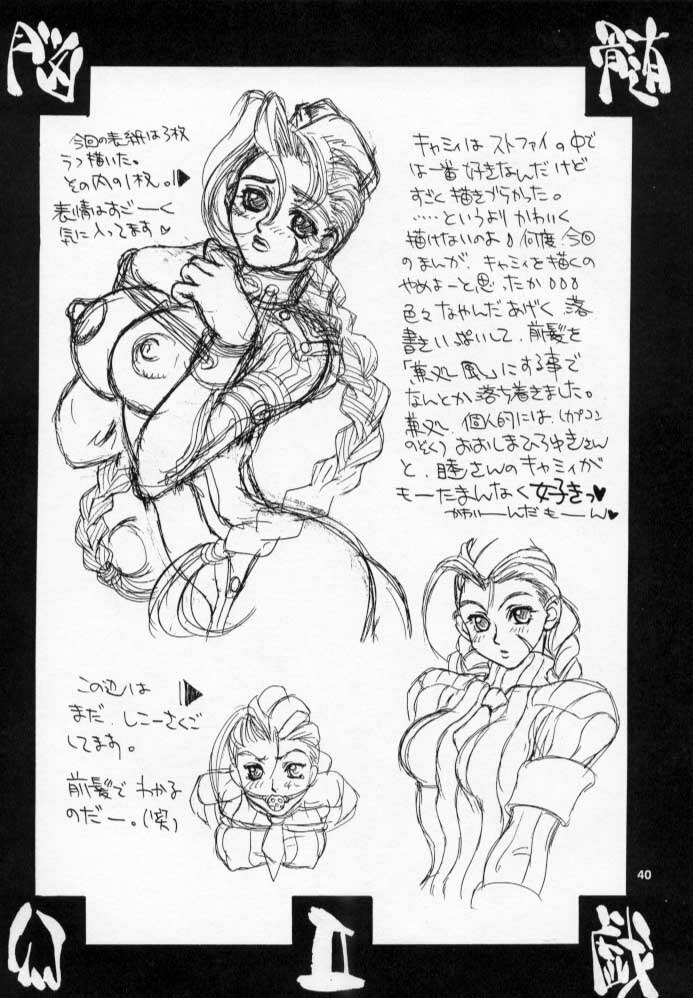 髄
脳
キャミィは ストファイの中で
は一番好きなんだけど
すごく描きづらかった。
……というよりかわいく
描けないのよ 何度 今回
のまんが、キャミィを描くの
やめよーと思ったか
色々なやんだあげく 落
書きいっぱいして、前髪を
「兼処風」にする事で
なんとか落ち着きました。
兼処、個人的には、(カプコン
のぞく) おおしまひろゆきさん
と、睦さんのキャミィが
もーたまんなく好きっ♥
かわいーんだもーん♥
今回の表紙は3枚
うつ描いた。
その内の1枚。
表情はすごーく
気に入ってます♡
この辺は
まだ、しこーさくご
してます。
前髪で わかる
のだー。(笑)
40
戯
工